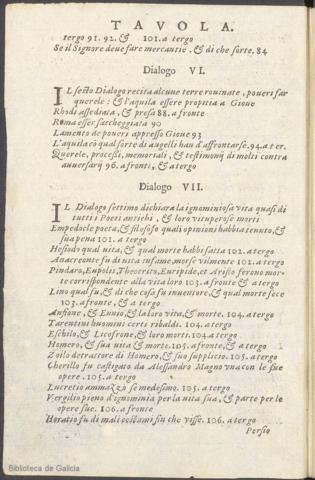 TAVOLA.
tergo 91. 92. & 101. a tergo
Se il Signore deue fare mercantie. & di che sorte. 84
Dialogo VI.
IL sesto Dialogo recita alcune terre rouinate, poueri far
querele: & l'aquila essere propitia a Gioue
Rhodi assediata, & presa 88. a fronte
Roma esser saccheggiata 90
Lamento de poueri appresso Gioue 93
L'aquila cō qual sorte di augelli hau d'affrontarse. 94. a ter.
Querele, processi, memoriali, & testimonij di molti contra
auuersarij 96. a fronti, & a tergo
Dialogo VII.
IL Dialogo settimo dichiara la ignominiosa vita quasi di
tutti i Poeti antichi, & loro vituperose morti
Empedocle poeta, & filosofo quali opinioni habbia tenuto, &
sua pena 101. a tergo
Hesiodo qual uita, & qual morte habbi fatta 102. a tergo
Anacreonte fu di uita infame, morse vilmente 102. a tergo
Pindaro, Eupolis, Theocrito, Euripide, et Aristo ferono mor-
te correspondente alla vita loro 103. a fronte & a tergo
Lino qual fu, & di che cosa fu inuentore, & qual morte fece
103. a fronte, & a tergo
Anfione, & Ennio, & la loro vita, & morte. 104. a tergo
Tarentini huomini certi ribaldi. 104. a tergo
Eschilo, & Licofrone, & loro morti. 104. a tergo
Homero, & sua uita & morte. 105. a fronte, & a tergo
Zoilo detrattore di Homero, & suo supplicio. 105. a tergo
Cherillo fu castigato da Alessandro Magno vna con le sue
opere. 105. a tergo
Lucretio ammazzò se medesimo. 105. a tergo
Vergilio pieno d'ignominia per la uita sua, & parte per le
opere sue. 106. a fronte
Horatio fu di mali costumi fin che visse. 106. a tergo
Persio
Biblioteca de Galicia